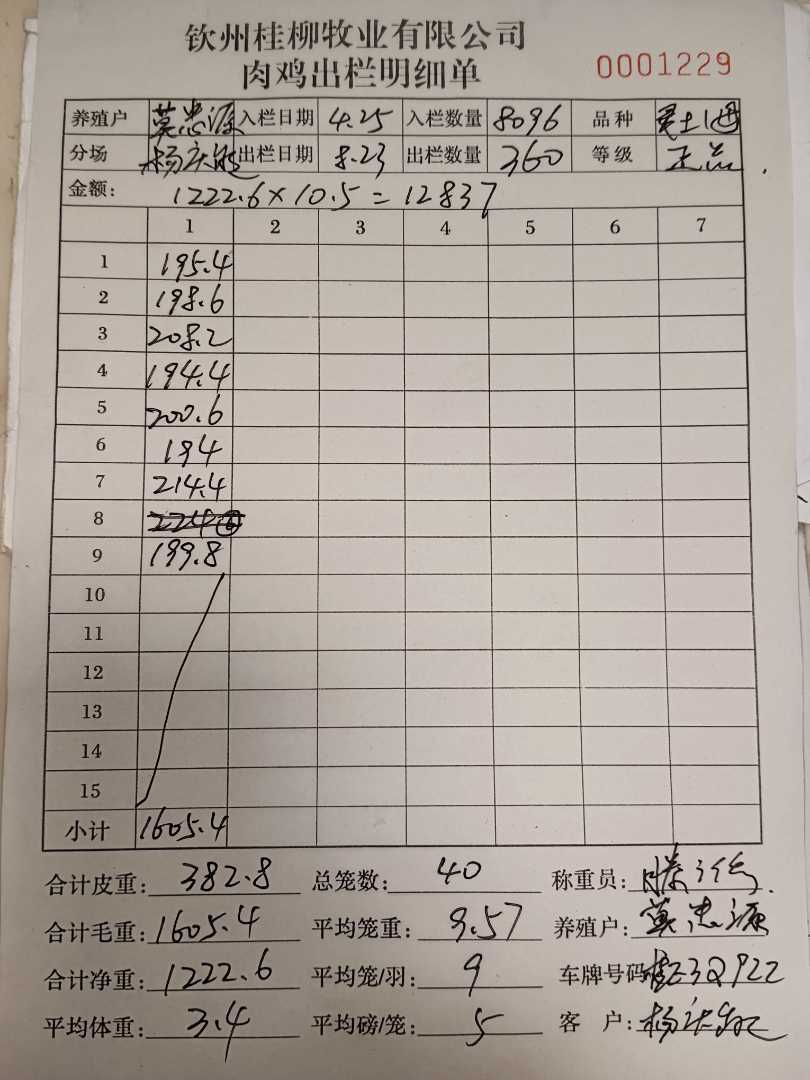 钦州桂柳牧业有限公司
肉鸡出栏明细单 0001229
养殖户 莫忠源 入栏日期 4.25 入栏数量 8096 品种
分场 出栏日期 8.23 出栏数量 360 等级 正品
金额: 1222.6×10.5=12837
1 2 3 4 5 6 7
1 195.4
2 198.6
3 208.2
4 194.4
5 200.6
6 194
7 214.4
8
9 199.8
10
11
12
13
14
15
小计 1605.4
合计皮重: 382.8 总笼数: 40 称重员:
合计毛重: 1605.4 平均笼重: 9.57 养殖户: 莫忠源
合计净重: 1222.6 平均笼/羽: 9 车牌号码
平均体重: 3.4 平均磅/笼: 5 客户: